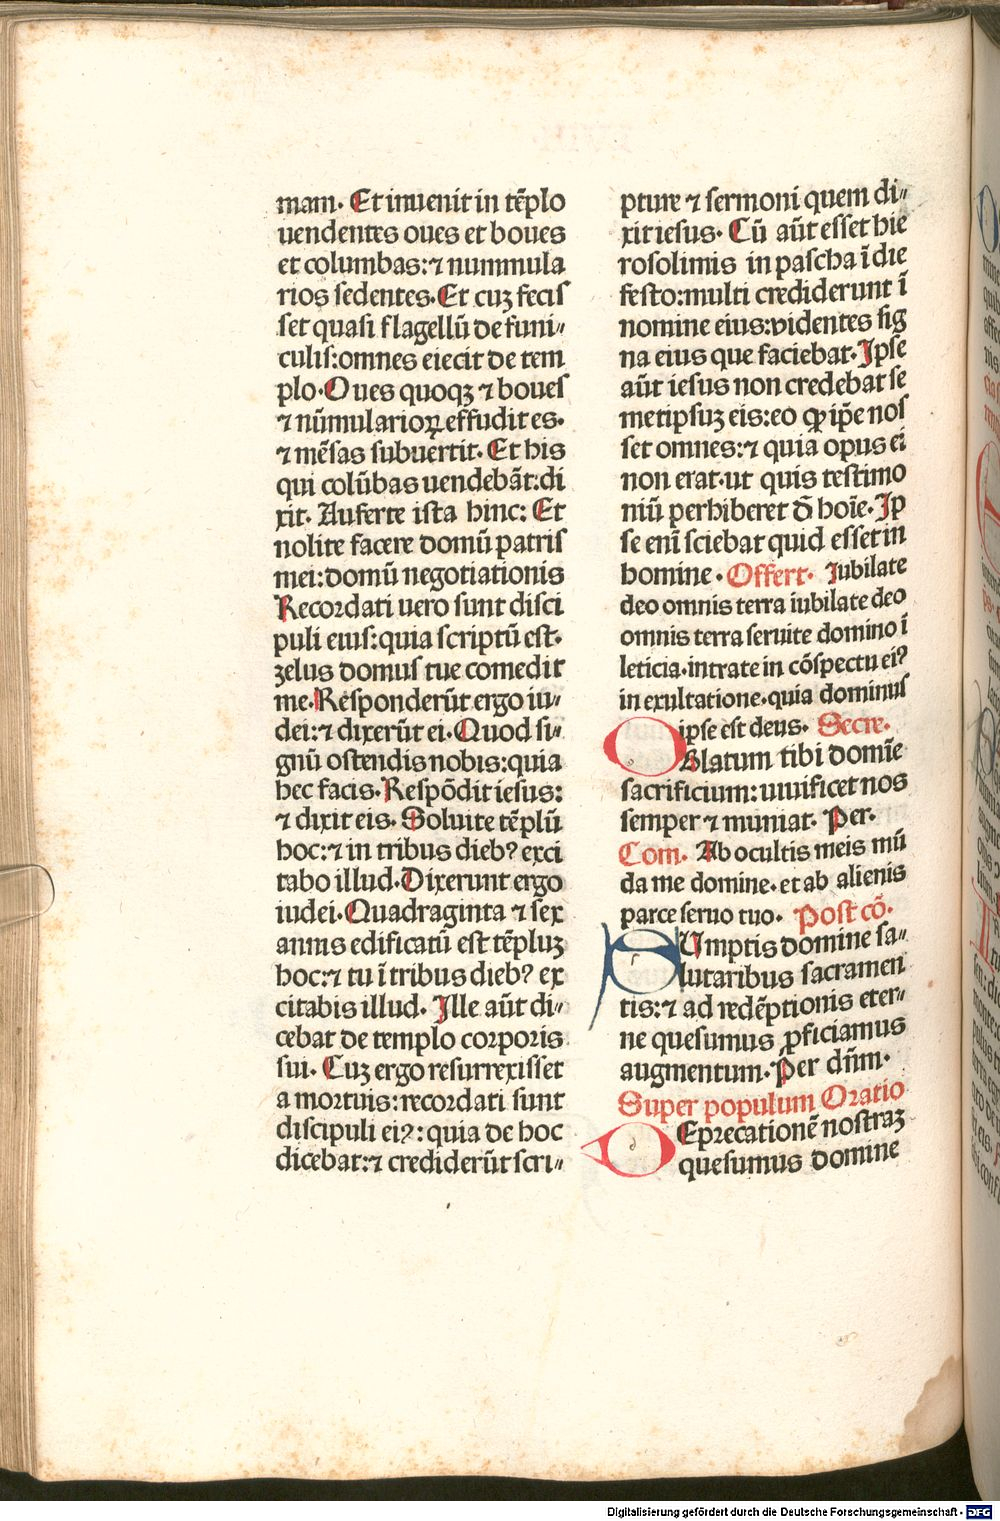 mam. Et inuenit in tēplo
uendentes oues et boues
et columbas: ⁊ nummula
rios sedentes. Et cuꝫ fecis
set quasi flagellū de funi⸗
culis: omnes eiecit de tem
plo. Oues quoqꝫ ⁊ boues
⁊ nūmularioꝝ effudit es.
⁊ mēsas subuertit. Et his
qui colūbas uendebāt: di
xit. Auferte ista hinc: Et
nolite facere domū patris
mei: domū negotiationis
Recordati uero sunt disci
puli eius: quia scriptū est.
zelus domus tue comedit
me. Responderūt ergo iu⸗
dei: ⁊ dixerūt ei. Quod si⸗
gnū ostendis nobis: quia
hec facis. Respōdit iesus:
⁊ dixit eis. Soluite tēplū
hoc: ⁊ in tribus dieb? exci
tabo illud. Dixerunt ergo
iudei. Quadraginta ⁊ sex
annis edificatū est tēpluꝫ
hoc: ⁊ tu ī tribus dieb? ex
citabis illud. Ille aūt di⸗
cebat de templo corporis
sui. Cuꝫ ergo resurrexisset
a mortuis: recordati sunt
discipuli ei?: quia de hoc
dicebat: ⁊ crediderūt scri⸗
pture ⁊ sermoni quem di⸗
xit iesus. Cū aūt esset hie
rosolimis in pascha ī die
festo: multi crediderunt ī
nomine eius: videntes sig
na eius que faciebat. Ipse
aūt iesus non credebat se
metipsuꝫ eis: eo ꝙ ip̄e nos
set omnes: ⁊ quia opus ei
non erat. ut quis testimo
niū perhiberet ď hoīe. Ip
se enī sciebat quid esset in
homine. Offert. Iubilate
deo omnis terra iubilate deo
omnis terra seruite domino ī
leticia. intrate in cōspectu ei?
in exultatione. quia dominus
ipse est deus. Secre.
OBlatum tibi domīe
sacrificium: uiuificet nos
semper ⁊ muniat. Per.
Com. Ab ocultis meis mū
da me domine. et ab alienis
parce seruo tuo. Post cō.
SUmptis domine sa⸗
lutaribus sacramen
tis: ⁊ ad redēptionis eter⸗
ne quesumus ꝓficiamus
augmentum. Per dn̄m.
Super populum Oratio
DEprecationē nostraꝫ
quesumus domine
Digitalisierung gefördert durch die Deutsche Forschungsgemeinschaft - DFG